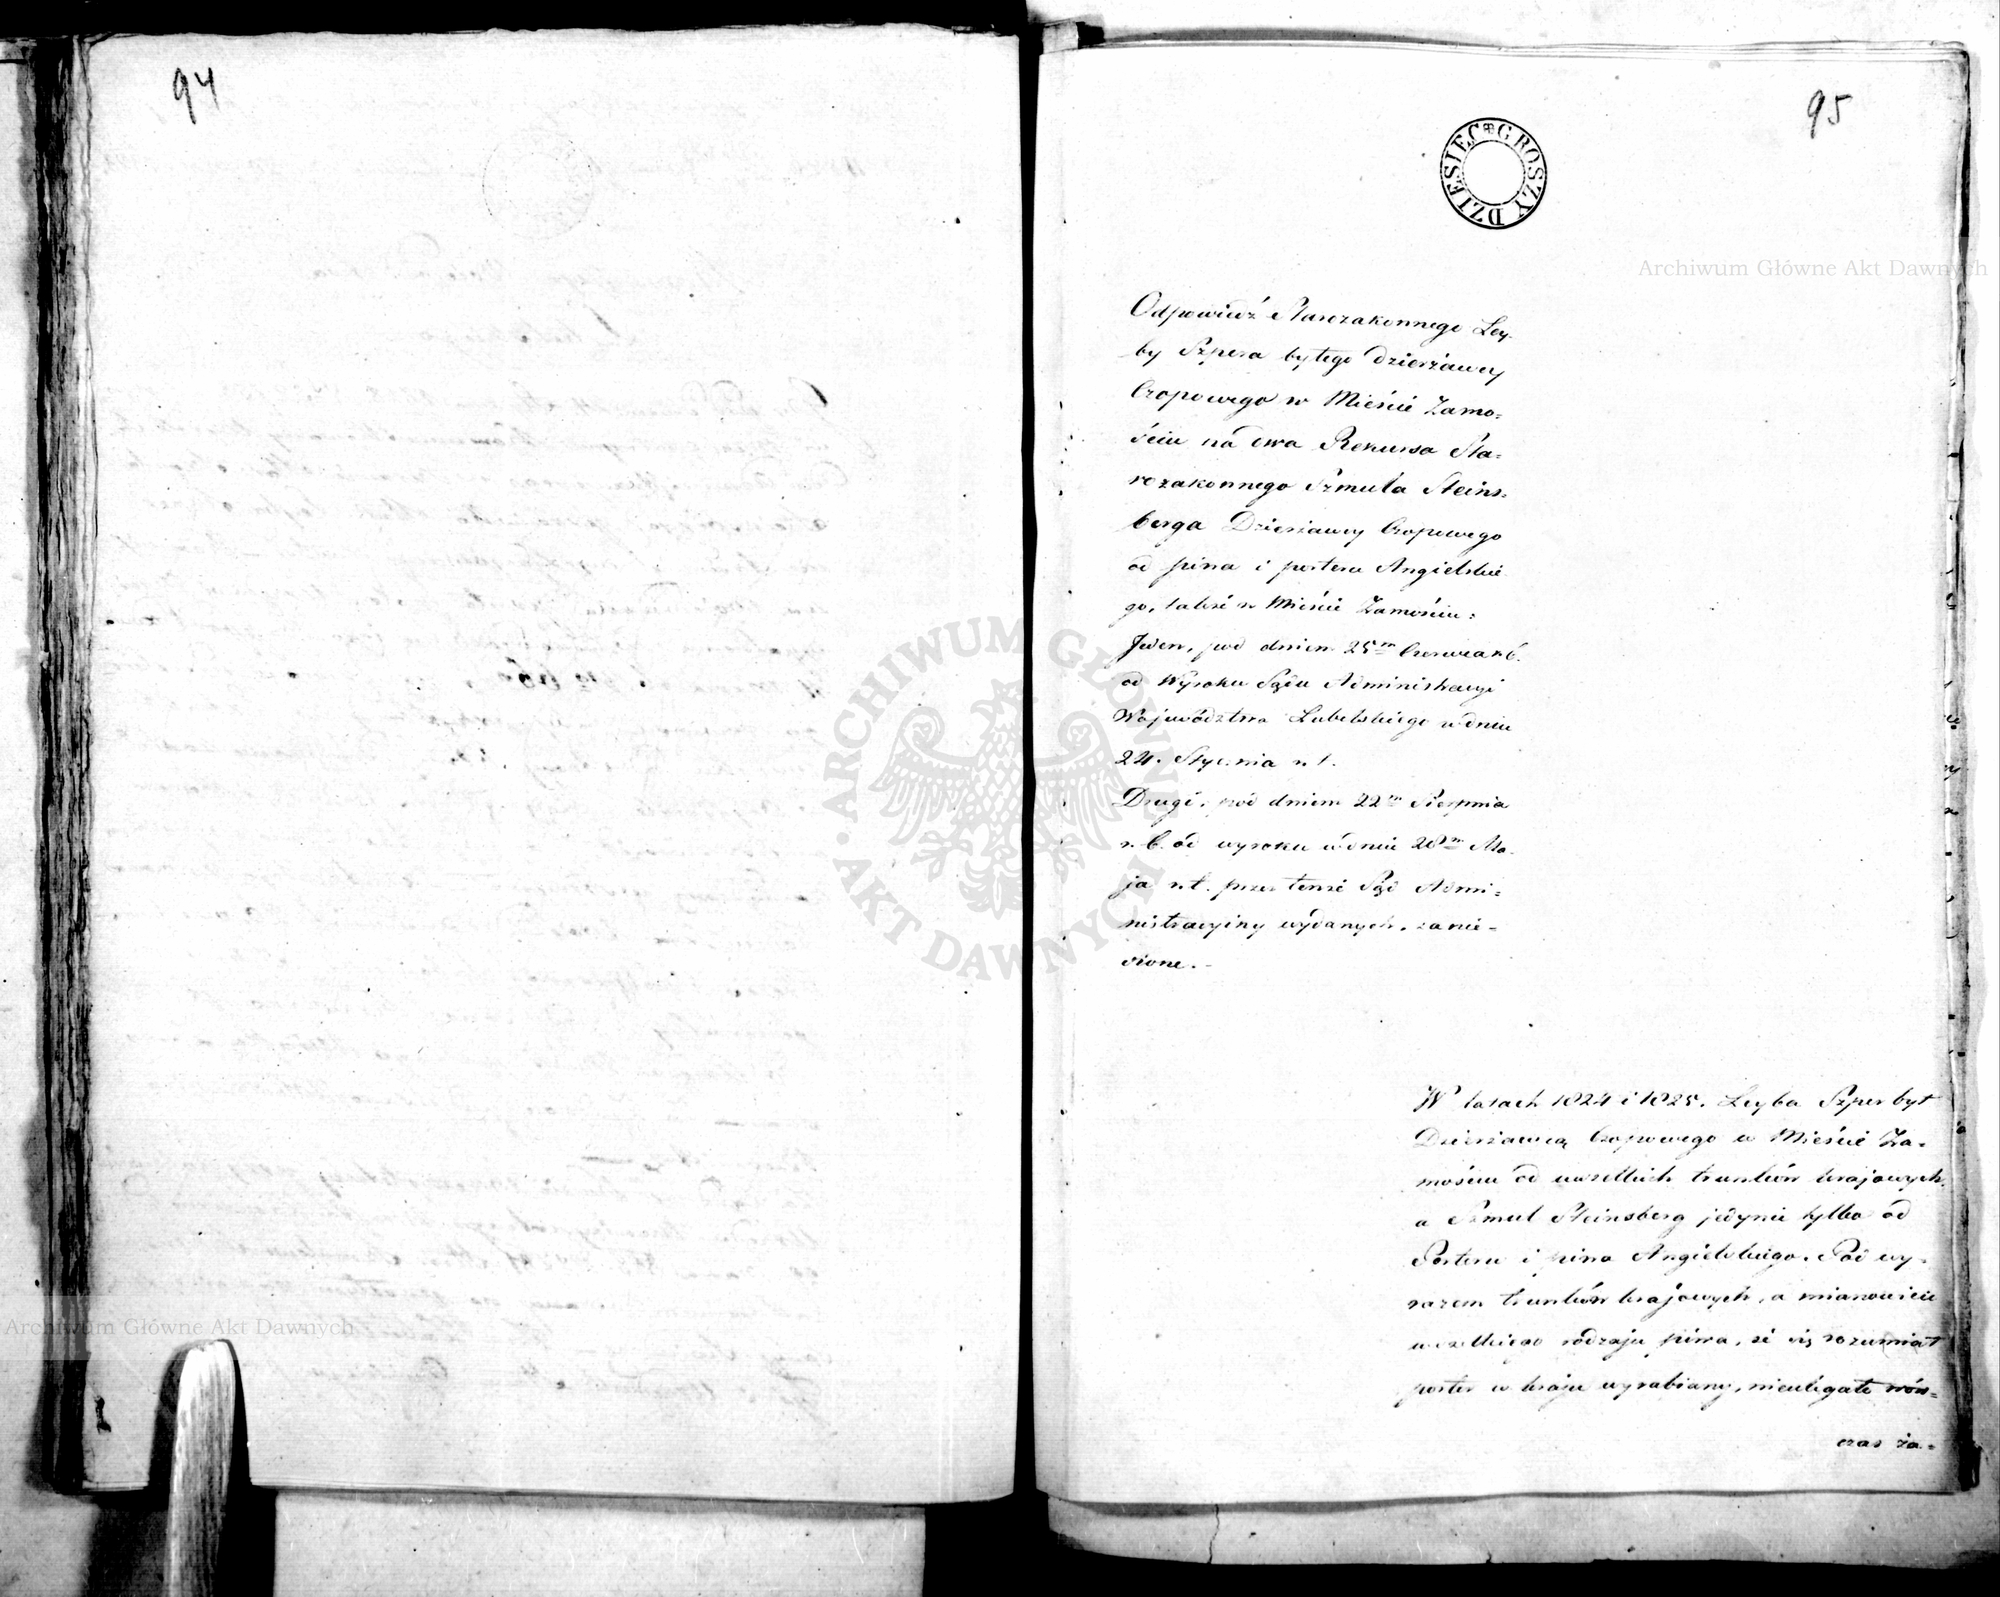 94
95
DZIESIĘĆ GROSZY
Archiwum Główne Akt Dawnych
Odpowiedź Starozakonnego Ley-
by Szpera byłego dzierżawcy
Czopowego w Mieście Zamo=
ściu na dwa Rekursa Sta=
rozakonnego Szmula Steins=
berga Dzierżawcy Czopowego
od piwa i porteru Angielskie
go, także w Mieście Zamościu:
Jeden, pod dniem 25m Czerwca r. b.
od Wyroku Sądu Administracyi
Województwa Lubelskiego w dniu
24. Stycznia r. t.
Drugi, pod dniem 22m Sierpnia
r. b. od wyroku w dniu 28m Ma-
ja r. t. przez tenże Sąd Admi=
nistracyiny wydanych, zanie=
sione. -
W latach 1824 i 1825. Leyba Szper był
Dzierżawcą Czopowego w Mieście Za=
mościu od wszelkich trunków krajowych,
a Szmul Steinsberg jedynie tylko od
Porteru i piwa Angielskiego. Pod wy=
razem trunków krajowych, a mianowicie
wszelkiego rodzaju piwa, że się rozumiał
porter w kraju wyrabiany, nieulegało wów=
czas ża=
ARCHIWUM GŁÓWNE AKT DAWNYCH
Archiwum Główne Akt Dawnych